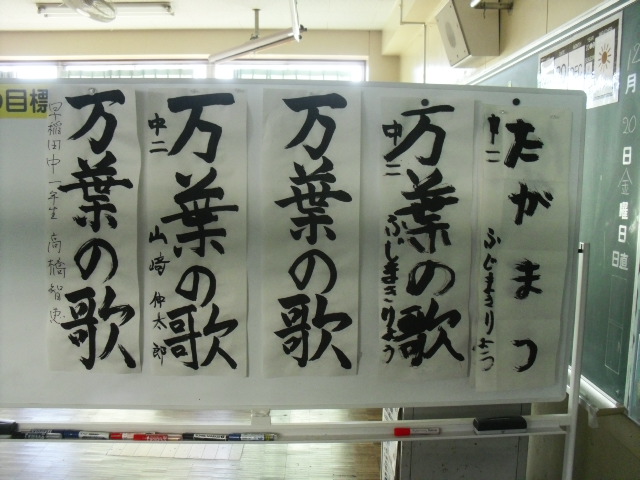 月20日金曜日
日直
たがまつ
中二 ふじまきりょう
万葉の歌
中二 ふじまきりょう
万葉の歌
万葉の歌
中二 山崎 伸太郎
万葉の歌
早稲田中一年生 高橋智恵
の目標